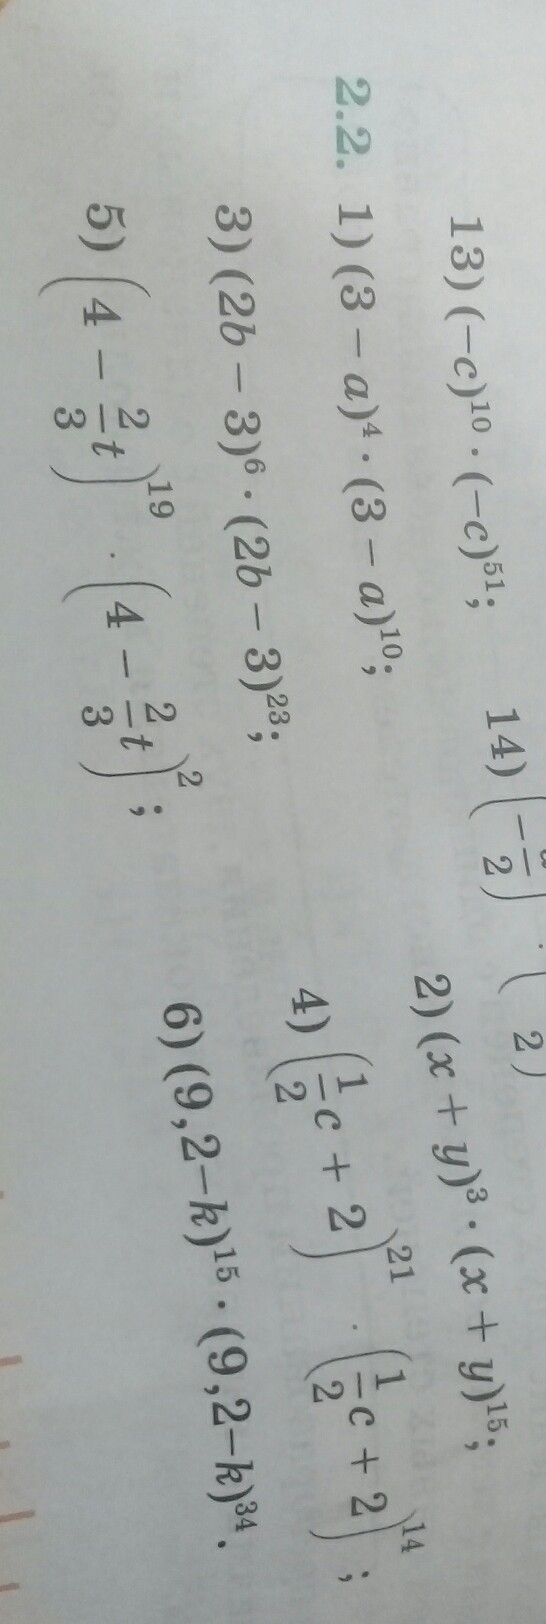 13) (−c)¹⁰ · (−c)⁵¹; 14) (− /2) · ( 2)
2.2. 1) (3 − a)⁴ · (3 − a)¹⁰; 2) (x + y)³ · (x + y)¹⁵;
3) (2b − 3)⁶ · (2b − 3)²³; 4) (1/2 c + 2)²¹ · (1/2 c + 2)¹⁴;
5) (4 − 2/3 t)¹⁹ · (4 − 2/3 t)²; 6) (9,2−k)¹⁵ · (9,2−k)³⁴.